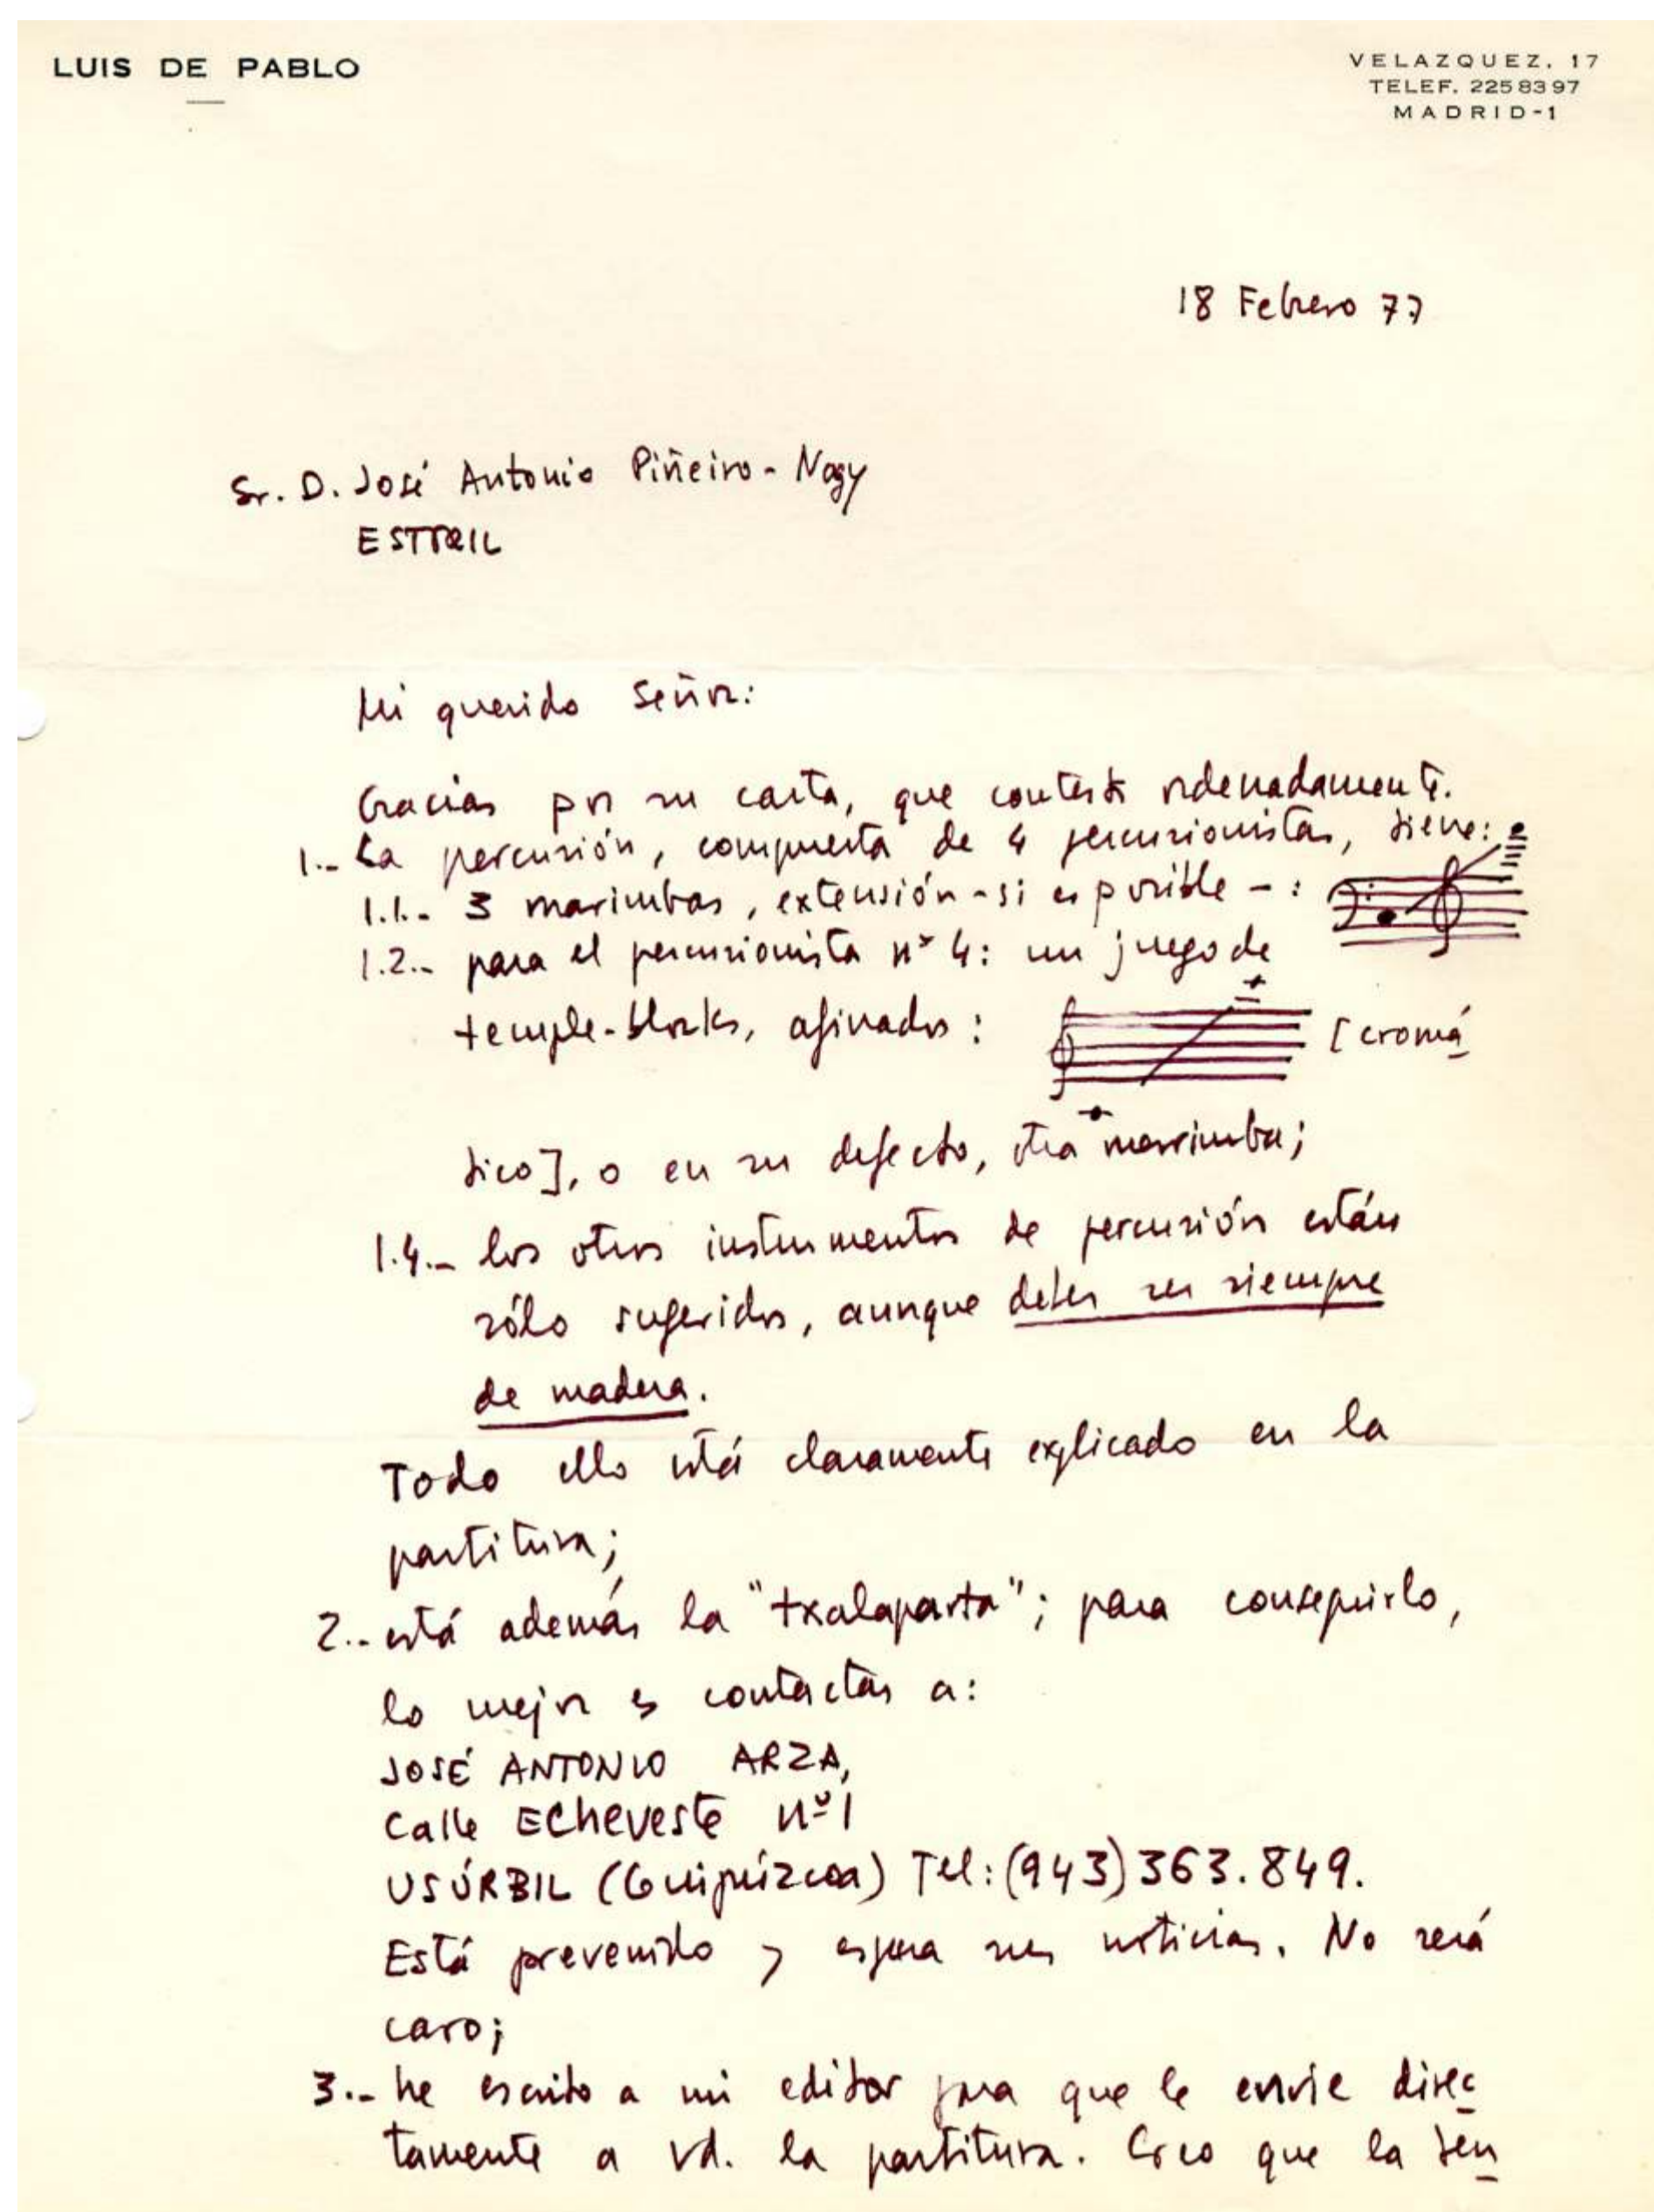 LUIS DE PABLO
VELAZQUEZ, 17
TELEF. 225 83 97
MADRID-1
18 Febrero 77
Sr. D. José Antonio Piñeiro-Nagy
ESTRIL
Mi querido Señor:
Gracias por su carta, que contesto ordenadamente.
1.- La percusión, compuesta de 4 percusionistas, tiene:
1.1.- 3 marimbas, extensión -si es posible - :
1.2.- para el percusionista nº 4: un juego de
temple-blocks, afinados :
[cromá
tico], o en su defecto, otra marimba;
1.4.- los otros instrumentos de percusión están
sólo sugeridos, aunque deben ser siempre
de madera.
Todo ello está claramente explicado en la
partitura;
2.- está además la "txalaparta"; para conseguirlo,
lo mejor es contactar a:
JOSÉ ANTONIO ARZA,
Calle Echeveste nº 1
USÚRBIL (Guipúzcoa) Tel: (943) 363.849.
Está prevenido y espera sus noticias. No será
caro;
3.- he escrito a mi editor para que le envie direc
tamente a Vd. la partitura. Creo que la ten